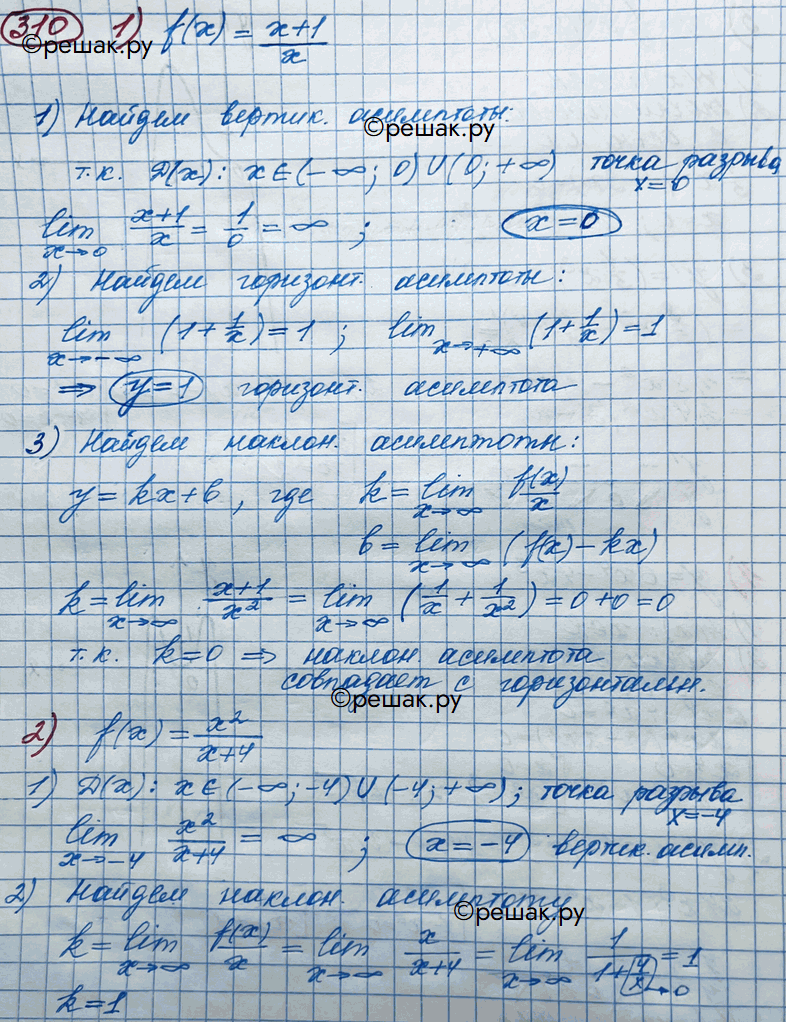 310 1) f(x) = x+1/x
©решак.ру
1) Найдем вертик. асимптоты:
©решак.ру
т.к. D(x): x∈(-∞; 0)∪(0; +∞) точка разрыва x=0
lim x→0 x+1/x = 1/0 = ∞ ; x=0
2) Найдем горизонт. асимптоты:
lim x→-∞ (1+1/x)=1 ; lim x→+∞ (1+1/x)=1
⇒ y=1 горизонт. асимптота
3) Найдем наклон. асимптоты:
y=kx+b, где k=lim x→∞ f(x)/x
b=lim x→∞ (f(x)-kx)
k=lim x→∞ x+1/x² = lim x→∞ (1/x + 1/x²)=0+0=0
т.к. k=0 ⇒ наклон. асимптота
совпадает с горизонтальн.
©решак.ру
2) f(x)=x²/x+4
1) D(x): x∈(-∞;-4)∪(-4;+∞); точка разрыва x=-4
lim x→-4 x²/x+4 = ∞ ; x=-4 вертик. асимп.
2) Найдем наклон. асимптоту
©решак.ру
k=lim x→∞ f(x)/x = lim x→∞ x/x+4 = lim x→∞ 1/1+4/x→0 = 1
k=1